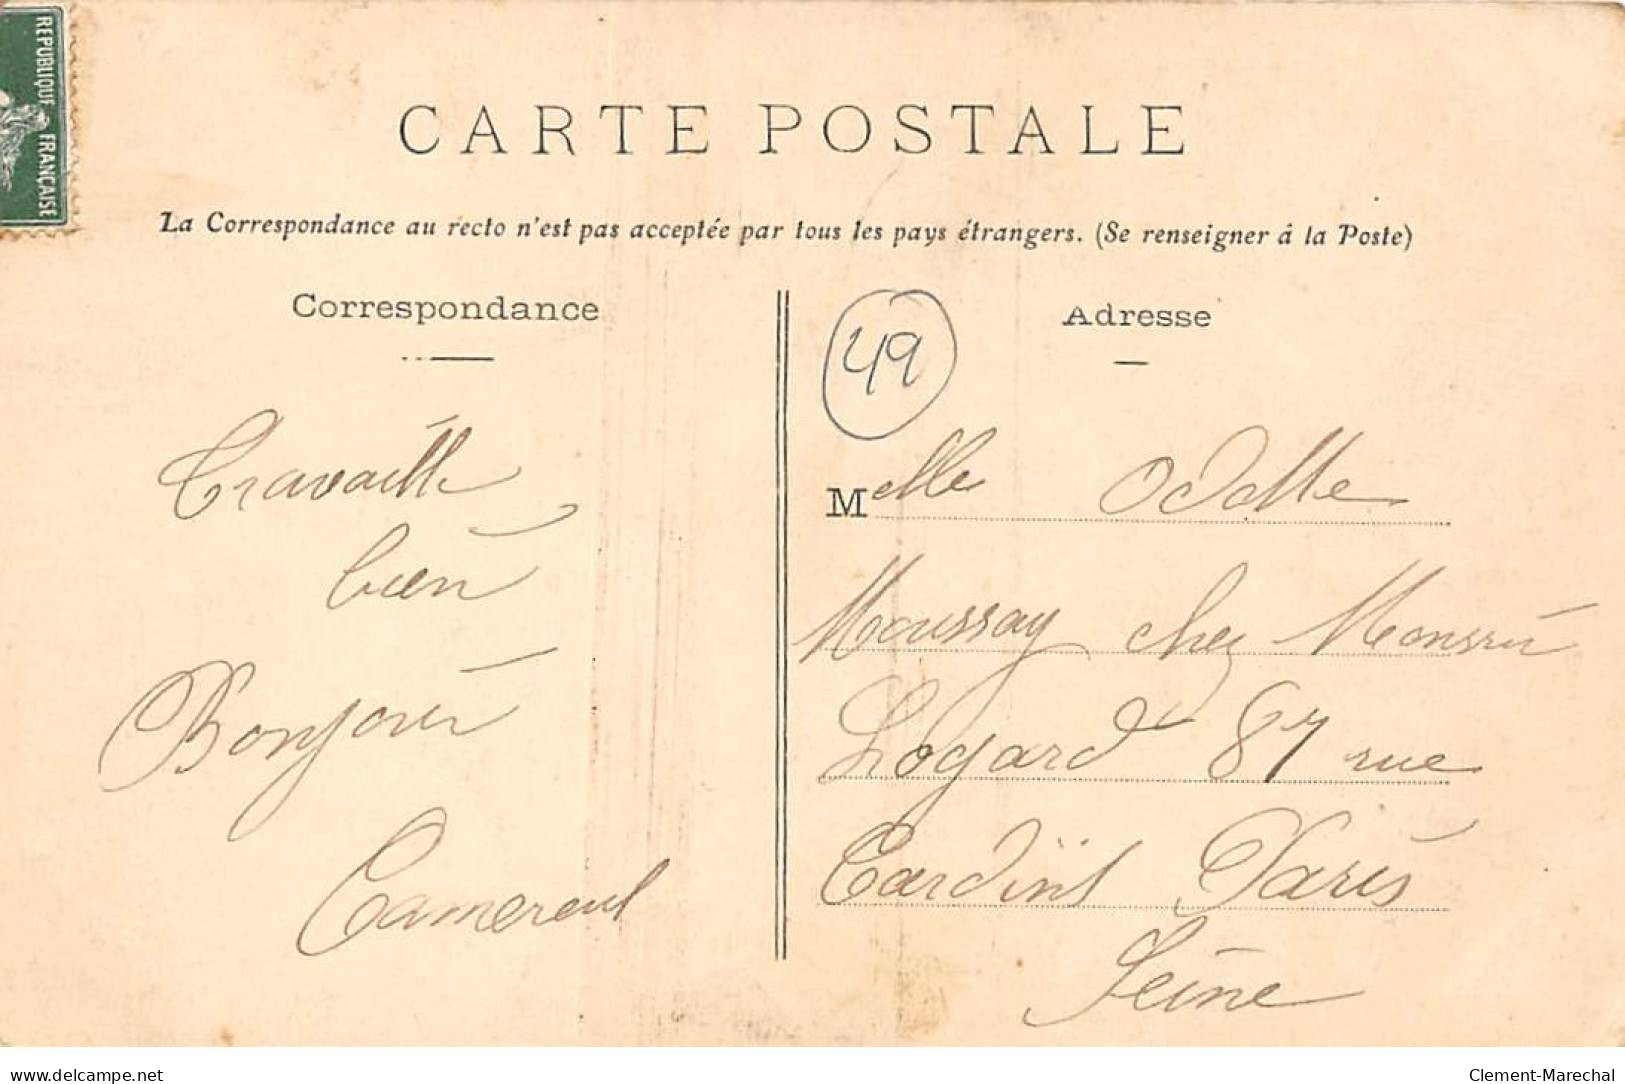 REPUBLIQUE FRANÇAISE
CARTE POSTALE
La Correspondance au recto n'est pas acceptée par tous les pays étrangers. (Se renseigner à la Poste)
Correspondance
Travaille
bien
Bonjour
49
Adresse
Melle Odette
Moussay chez
Logard 87 rue
Paris
Seine
www.delcampe.net
Clement-Marechal